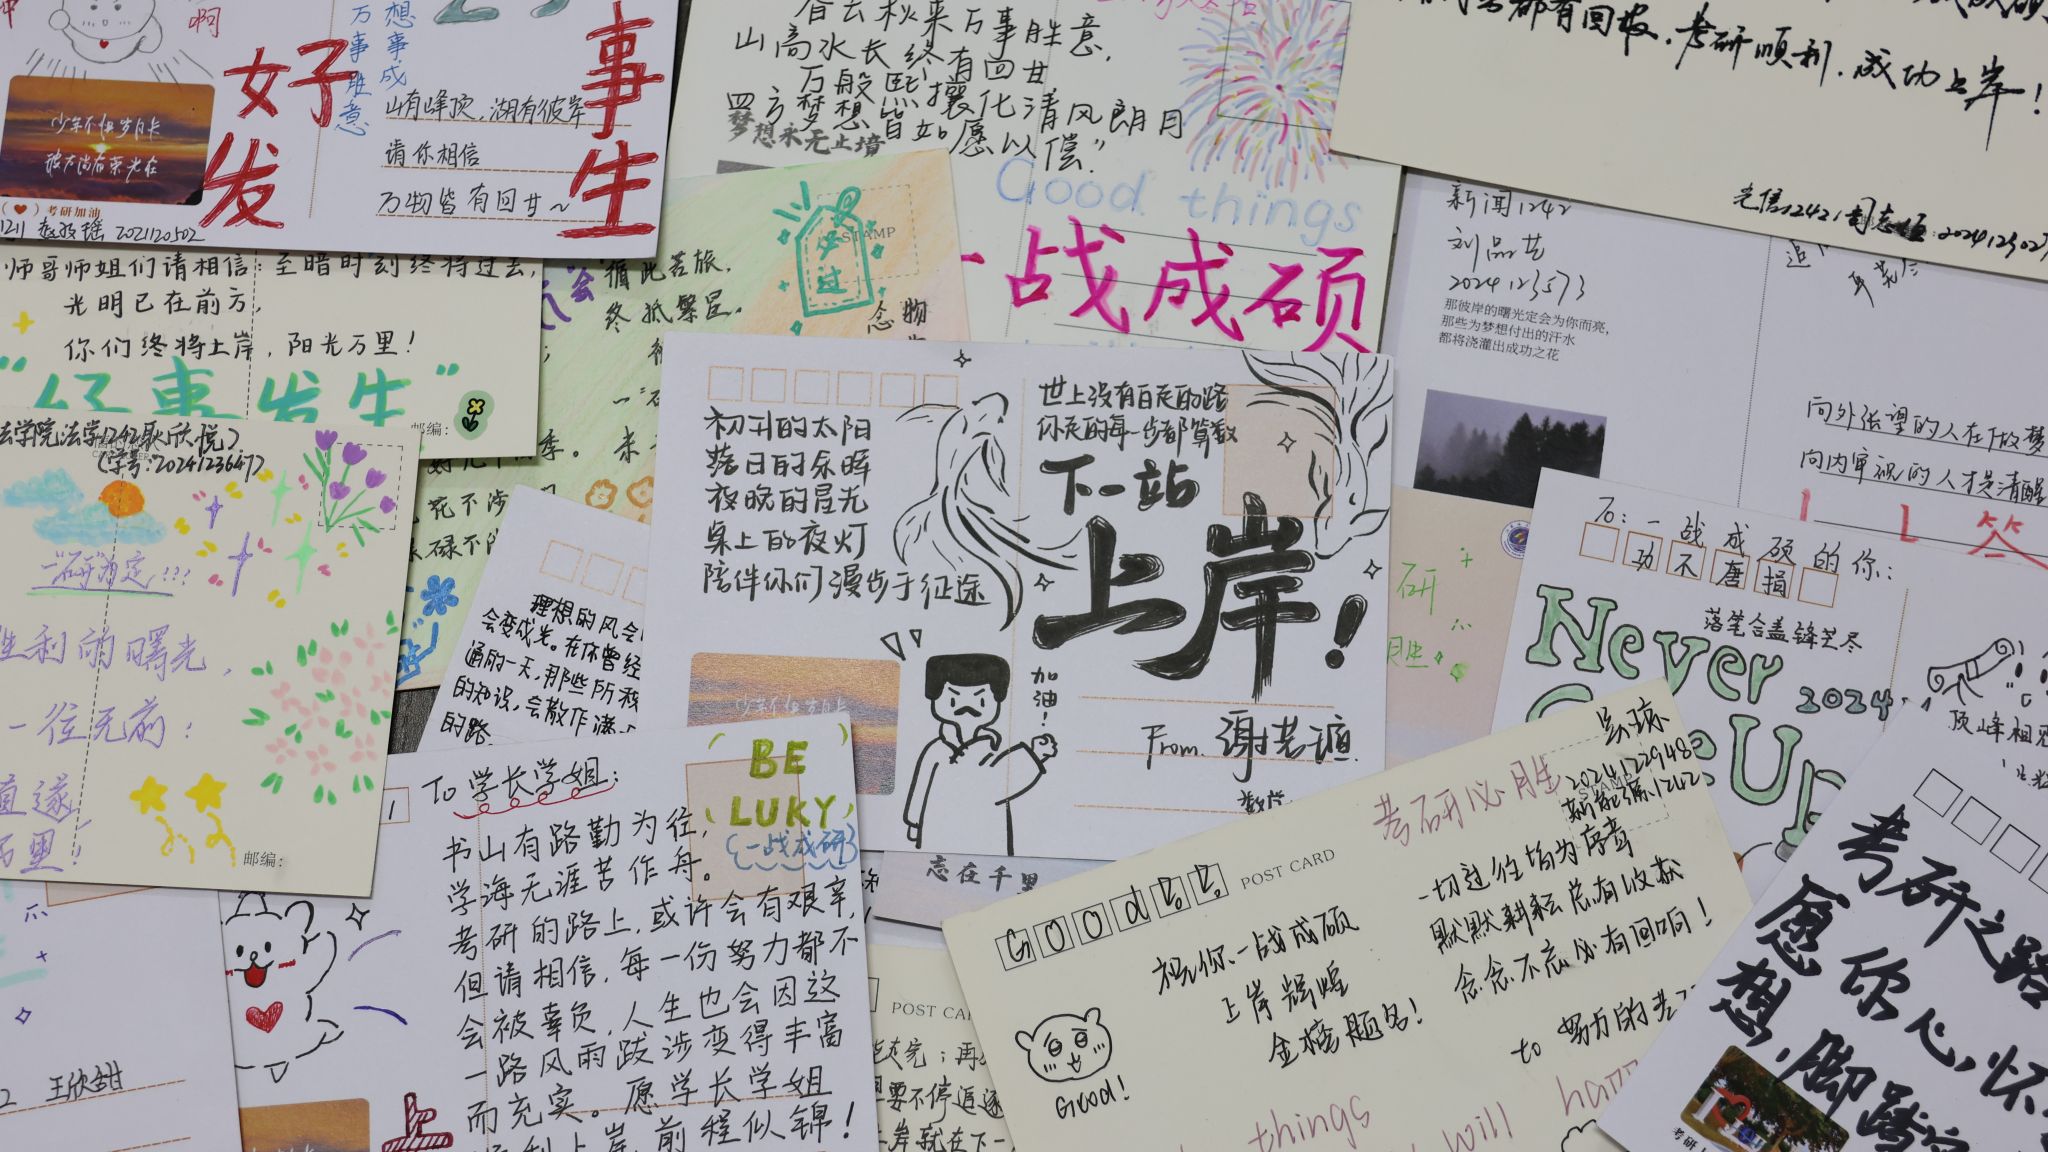 啊
好
事
发
生
想事成
万事胜意
山有峰顶，湖有彼岸
请你相信
万物皆有回甘~
少年不惧岁月长
彼方尚有荣光在
考研加油
春去秋来万事胜意，
山高水长终有回甘
万般熙攘化清风朗月
四方梦想皆如愿以偿”
梦想永无止境
Good things
一战成硕
都有回报，考研顺利，成功上岸！
新闻1242
刘品艺
2024123573
那彼岸的曙光定会为你而亮，
那些为梦想付出的汗水
都将浇灌出成功之花
向外张望的人在做梦
向内审视的人才是清醒
师哥师姐们请相信：至暗时刻终将过去，
光明已在前方，
你们终将上岸，阳光万里！
“好事发生”
邮编：
循此苦旅，
终抵繁星。
STAMP
必过
念
物
法学院法学1242耿欣悦
(学号：2024123647)
“研”为定!!!
胜利的曙光，
一往无前：
直遂
邮编：
理想的风会
会变成光。在你曾经
通的一天，那些所
的知识，会散作满
的路
初升的太阳
落日的余晖
夜晚的星光
桌上的夜灯
陪伴你们漫步于征途
世上没有白走的路
你走的每一步都算数
下一站
上岸！
加油！
From.
研
胜
To：一战成硕的你：
功不唐捐
落笔合盖锋芒尽
Never
2024
Give UP
顶峰相见
To 学长学姐：
BE
LUKY
{一战成研}
书山有路勤为径，
学海无涯苦作舟。
考研的路上，或许会有艰辛，
但请相信，每一份努力都不
会被辜负，人生也会因这
一路风雨跋涉变得丰富
而充实。愿学长学姐
顺利上岸，前程似锦！
王欣甜
上
志在千里
POST CARD
要不停追逐
岸就在下一
考研必胜
2024122948
新能源1242
Good
POST CARD
祝你一战成硕
上岸辉煌
金榜题名！
一切过往皆为序章
默默耕耘总有收获
念念不忘必有回响！
to 努力的考
Good!
things
will
考研之路
愿你心怀
想，脚踏